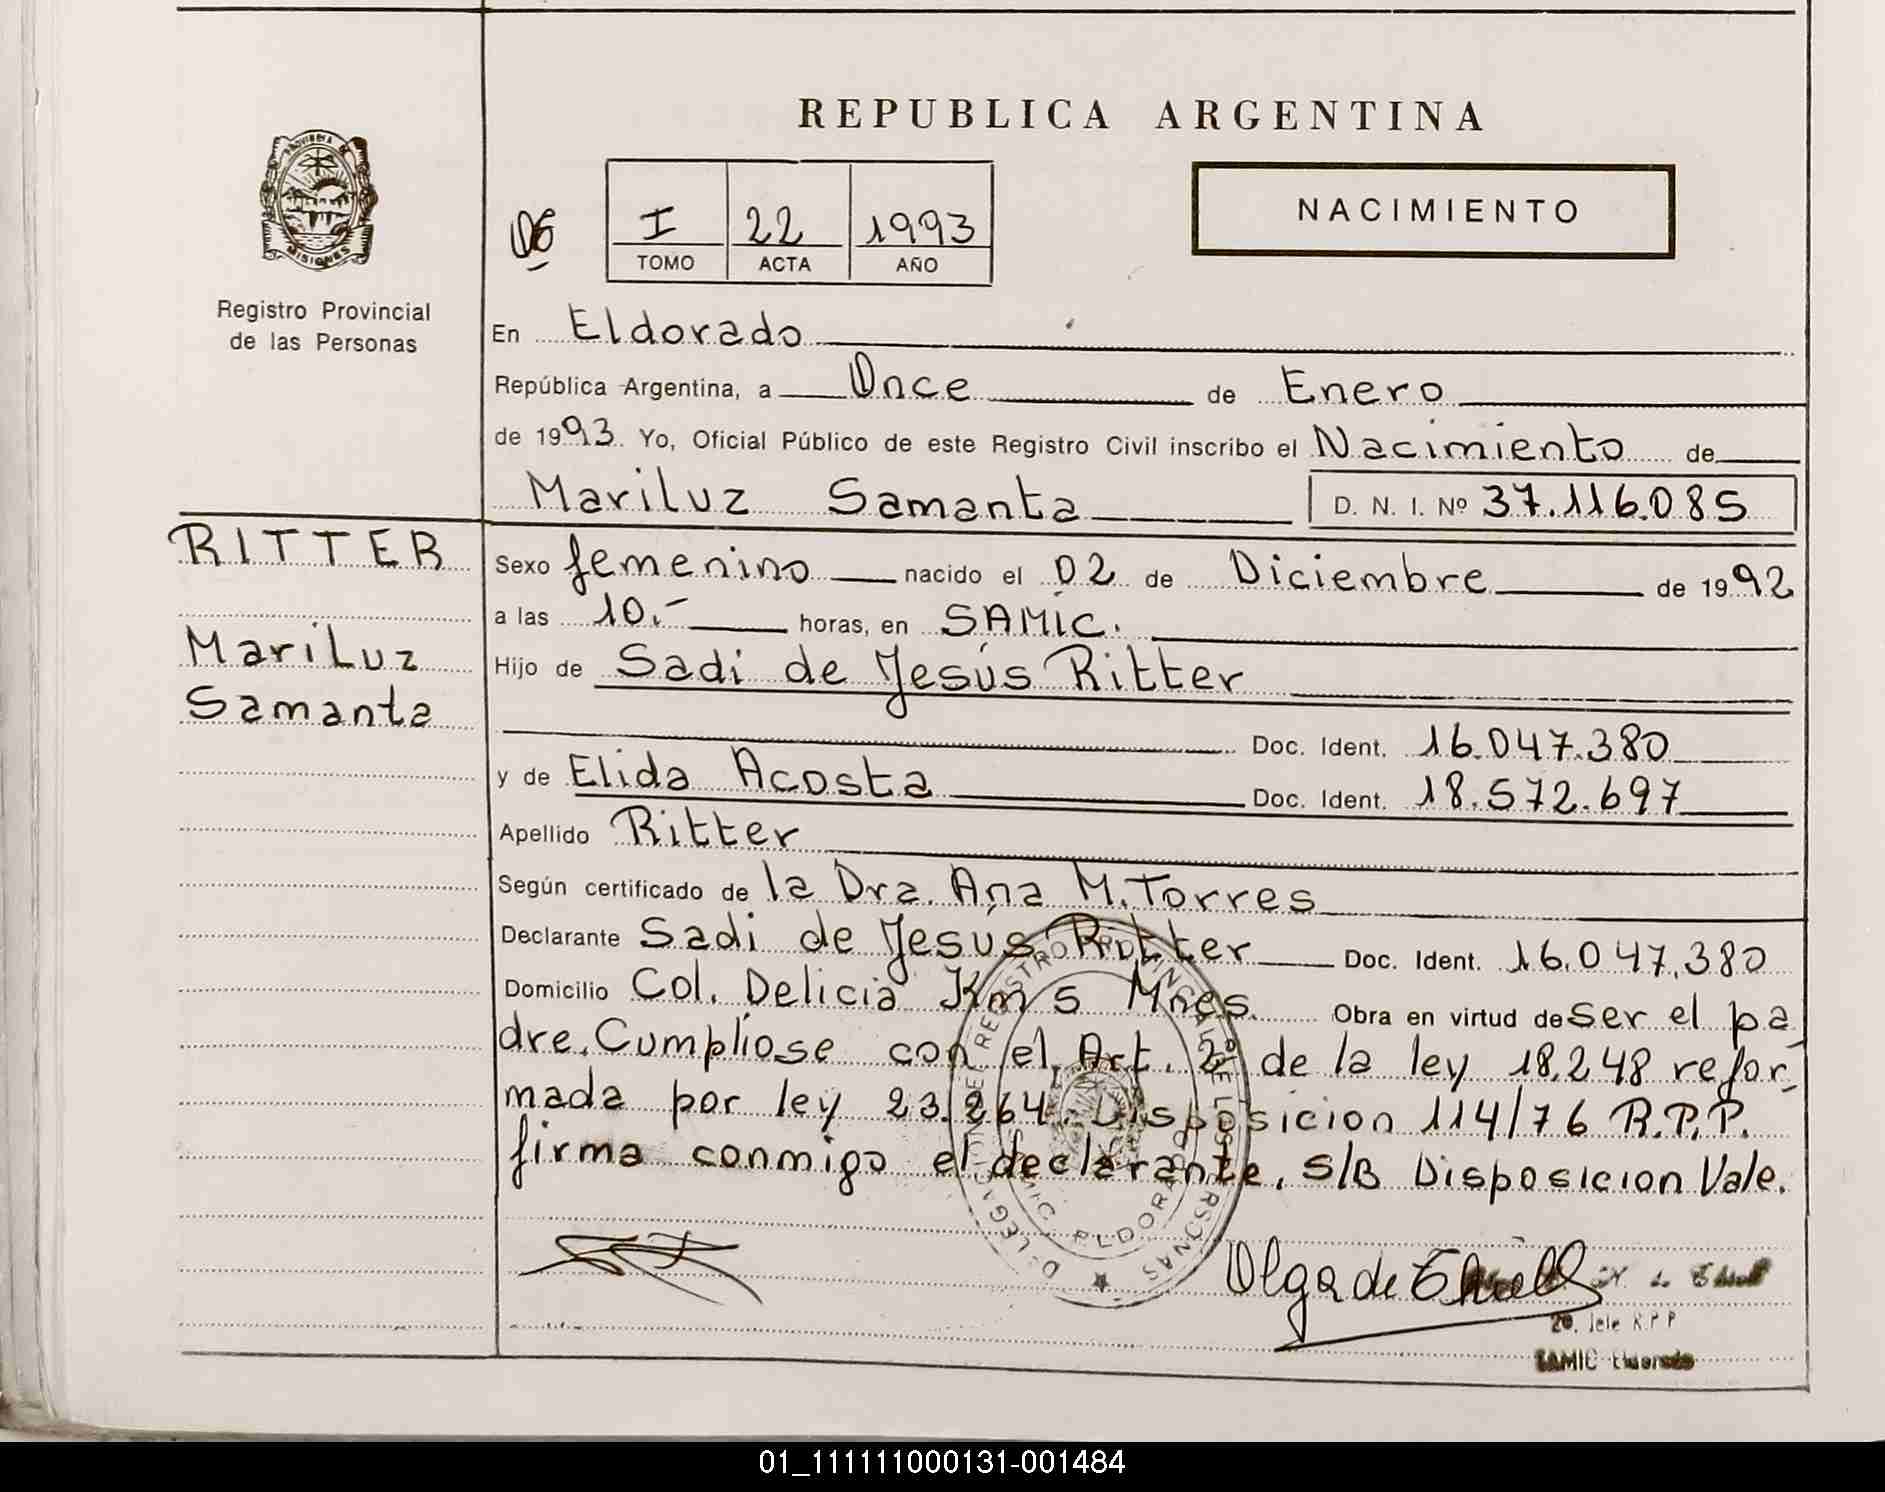 REPUBLICA ARGENTINA
PROVINCIA DE
MISIONES
Registro Provincial
de las Personas
06
I 22 1993
TOMO ACTA AÑO
NACIMIENTO
En Eldorado
República Argentina, a Once de Enero
de 1993. Yo, Oficial Público de este Registro Civil inscribo el Nacimiento de
Mariluz Samanta D. N. I. Nº 37.116.085
RITTER
MariLuz
Samanta
Sexo femenino nacido el 02 de Diciembre de 1992
a las 10.- horas, en SAMIC.
Hijo de Sadi de Jesús Ritter
Doc. Ident. 16.047.380
y de Elida Acosta Doc. Ident. 18.572.697
Apellido Ritter
Según certificado de la Dra. Ana M. Torres
Declarante Sadi de Jesús Ritter Doc. Ident. 16.047.380
Domicilio Col. Delicia Km 5 Mnes. Obra en virtud de ser el pa
dre. Cumpliose con el Art. 2º de la ley 18.248 refor-
mada por ley 23.264. Disposicion 114/76 R.P.P.
firma conmigo el declarante, S/B Disposicion Vale.
DELEGACION DEL REGISTRO PROVINCIAL DE LAS PERSONAS
ELDORADO
Olga de Thiell
20. Jefe R.P.P
SAMIC Eldorado
01_111111000131-001484